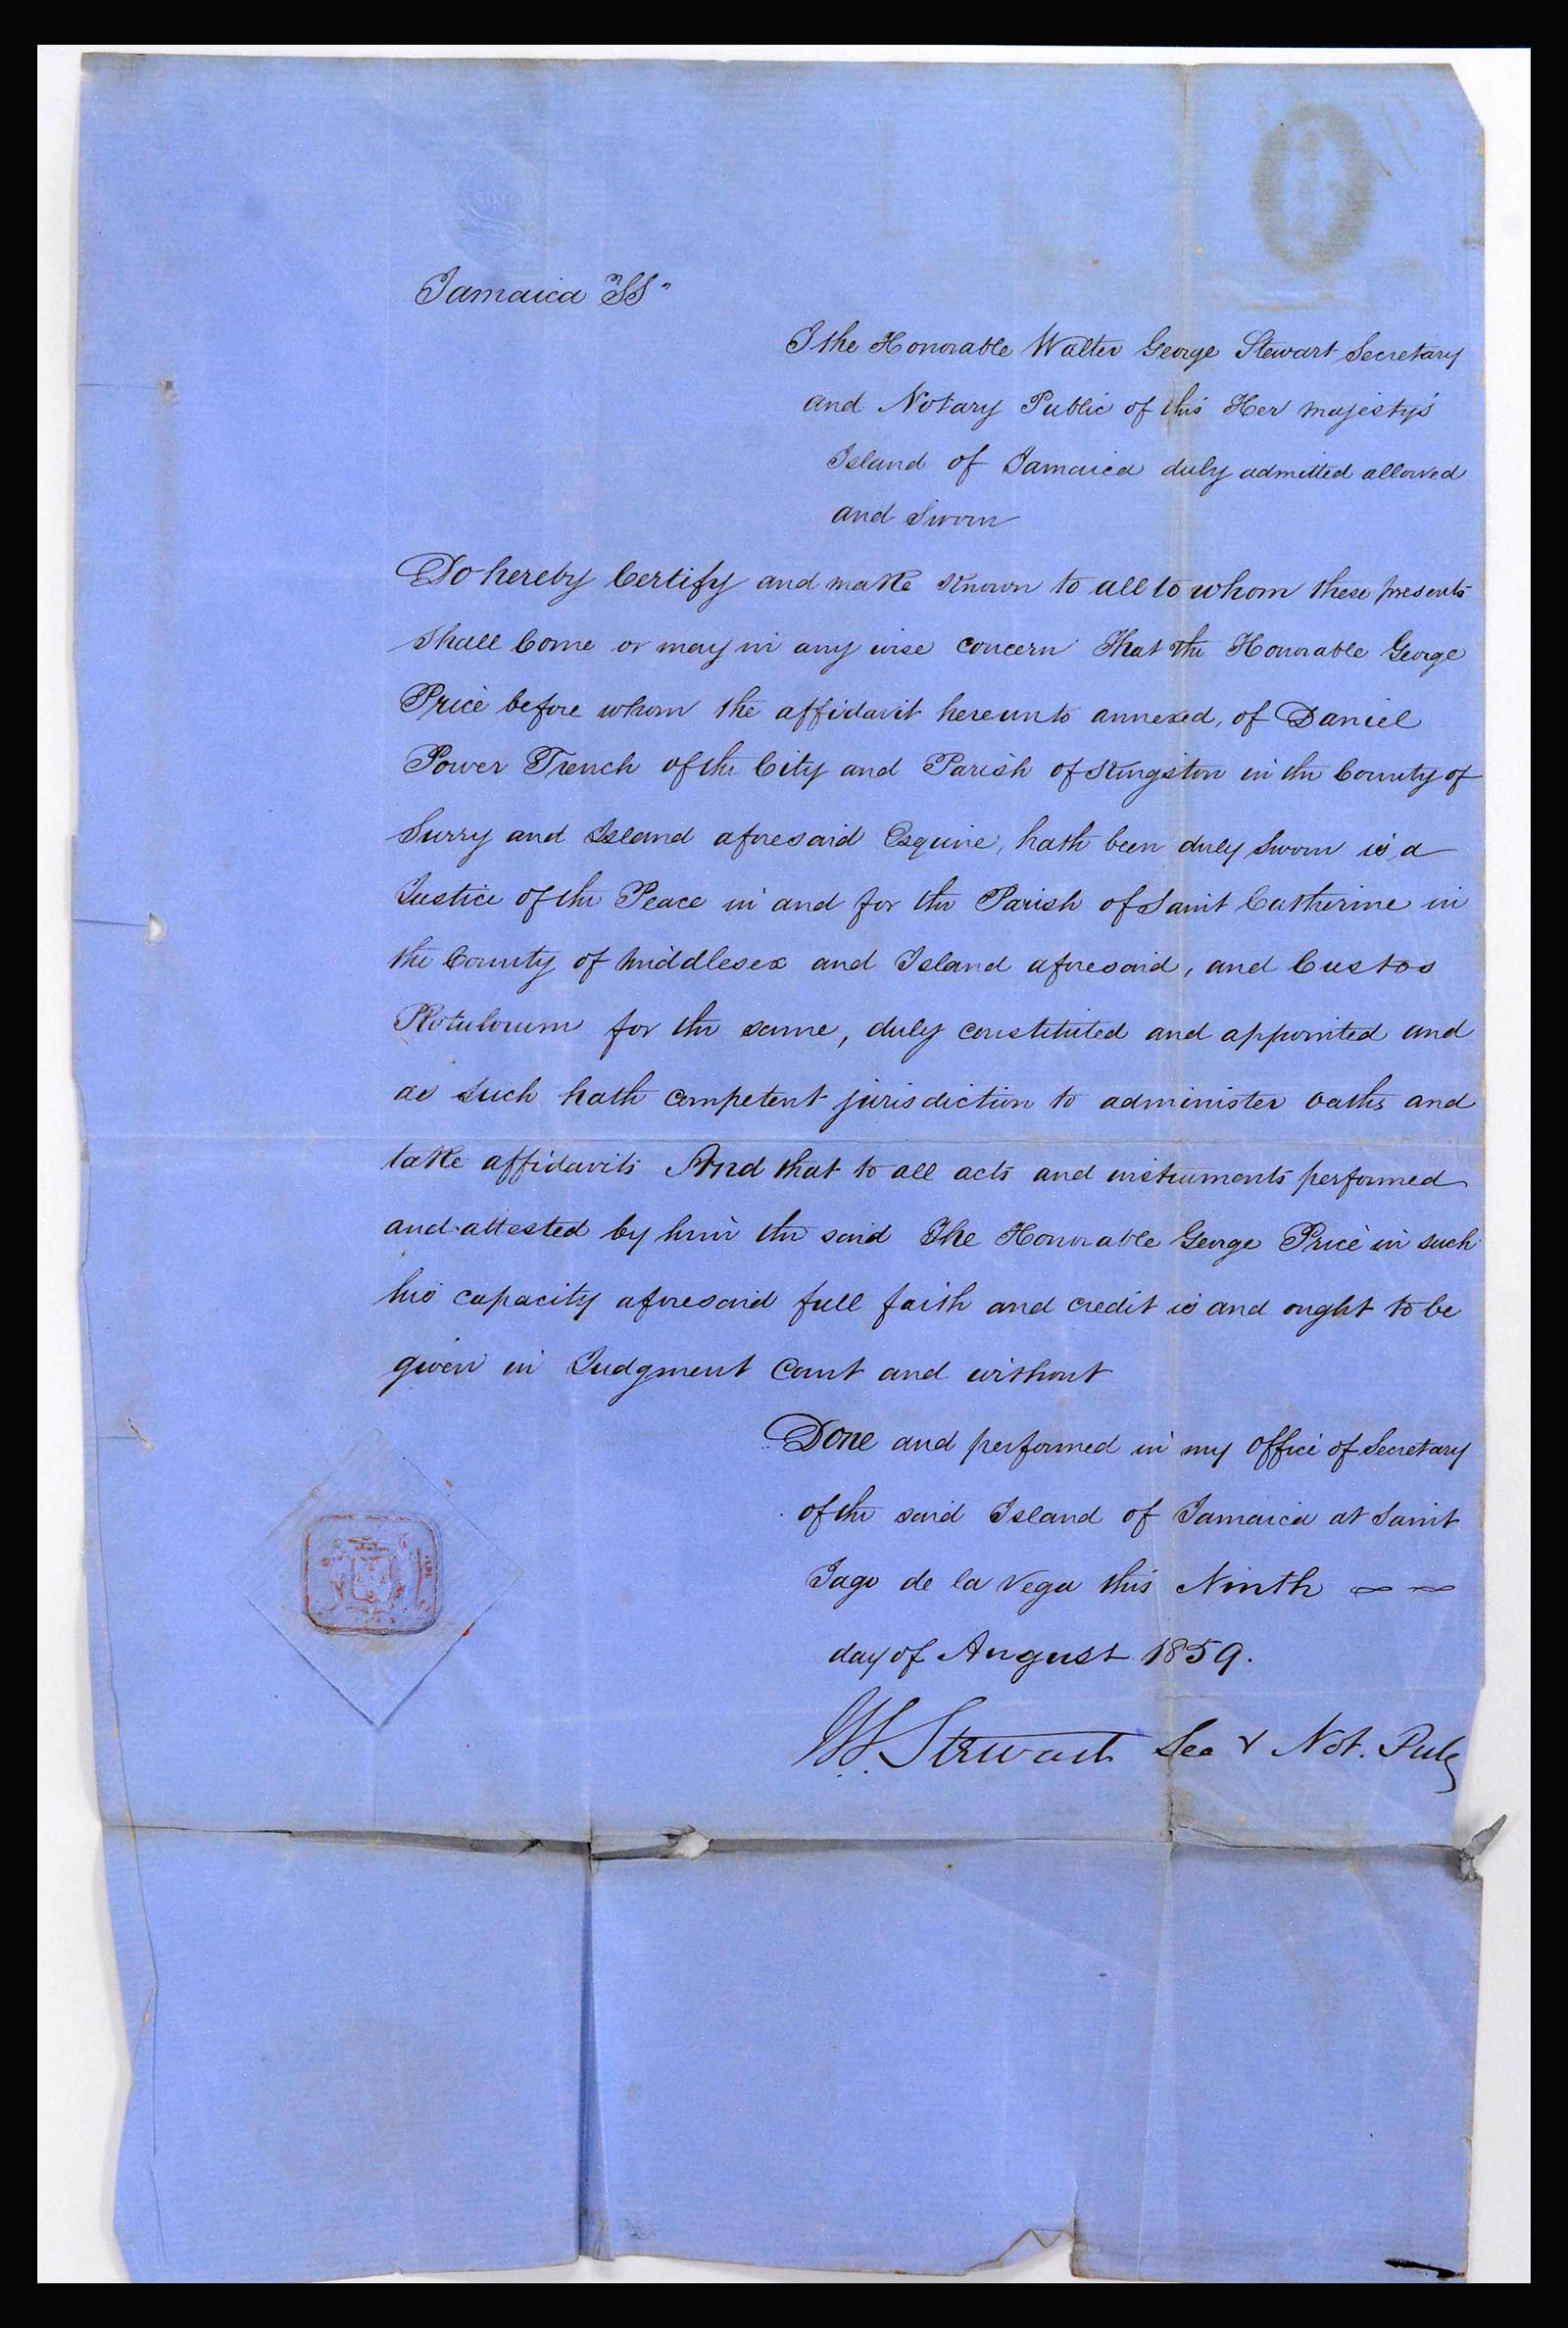 Jamaica SS
I the Honorable Walter George Stewart Secretary
and Notary Public of this Her Majesty's
Island of Jamaica duly admitted allowed
and Sworn
Do hereby Certify and make Known to all to whom these presents
shall Come or may in any wise concern That the Honorable George
Price before whom the affidavit hereunto annexed, of Daniel
Power Trench of the City and Parish of Kingston in the County of
Surry and Island aforesaid Esquire, hath been duly Sworn is a
Justice of the Peace in and for the Parish of Saint Catherine in
the County of Middlesex and Island aforesaid, and Custos
Rotulorum for the same, duly constituted and appointed and
as such hath competent jurisdiction to administer Oaths and
take affidavits And that to all acts and instruments performed
and attested by him the said The Honorable George Price in such
his capacity aforesaid full faith and credit is and ought to be
given in Judgment Court and without
Done and performed in my Office of Secretary
of the said Island of Jamaica at Saint
Jago de la Vega this Ninth
day of August 1859.
W. Stewart Sec & Not. Pub